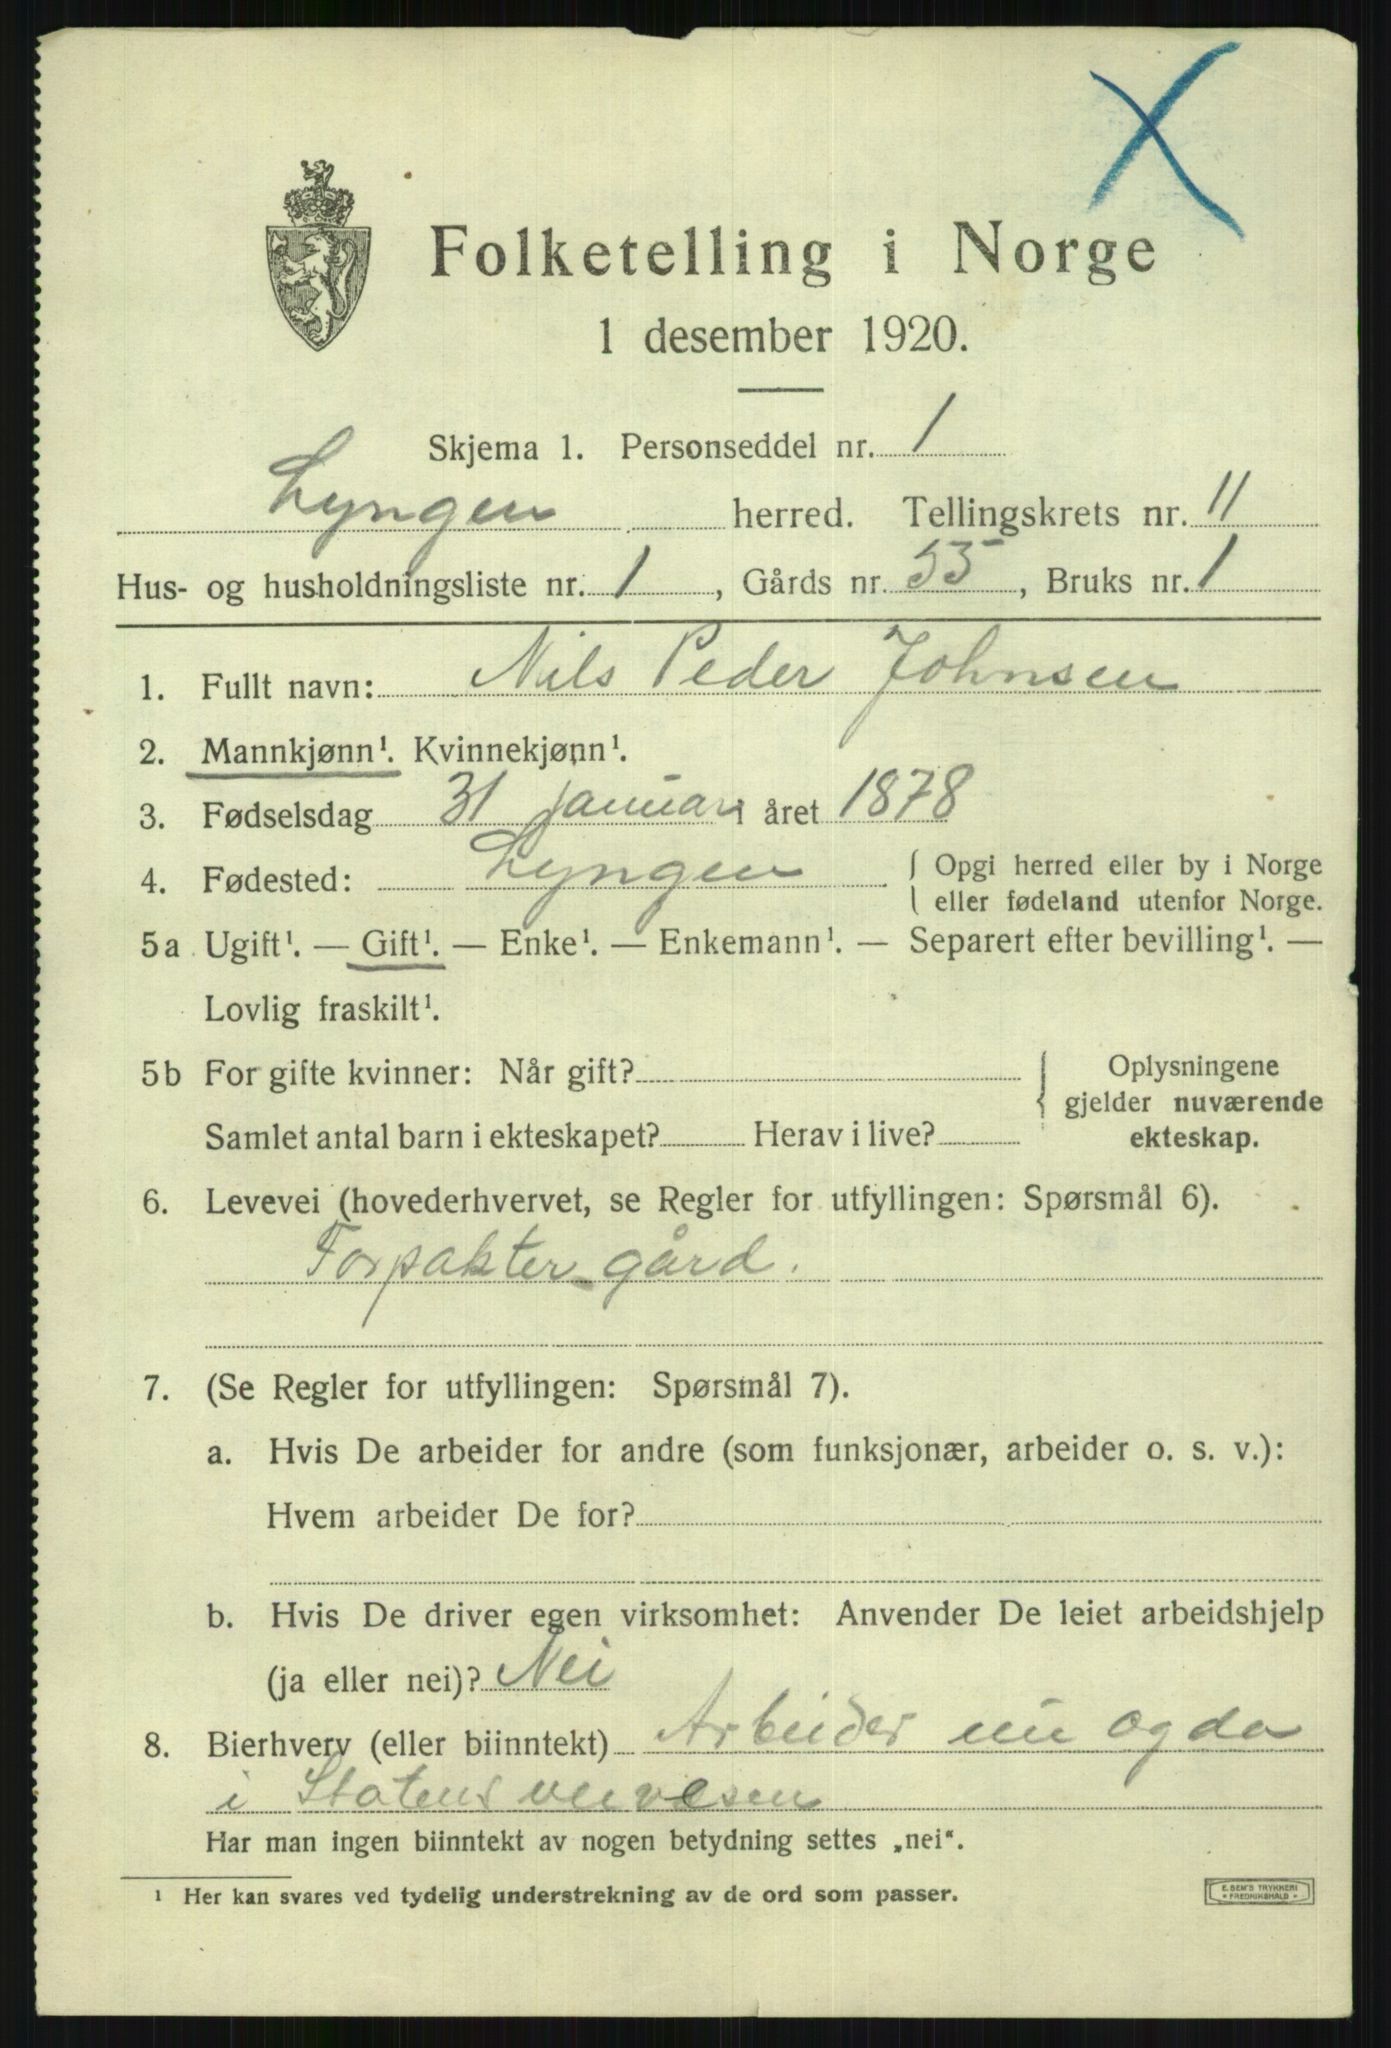 Folketelling i Norge
1 desember 1920.
Skjema 1. Personseddel nr. 1
Lyngen herred. Tellingskrets nr. 11
Hus- og husholdningsliste nr. 1, Gårds nr. 55, Bruks nr. 1
1. Fullt navn: Nils Peder Johnsen
2. Mannkjønn¹. Kvinnekjønn¹.
3. Fødselsdag 31 januar i året 1878
4. Fødested: Lyngen { Opgi herred eller by i Norge
eller fødeland utenfor Norge.
5a Ugift¹. — Gift¹. — Enke¹. — Enkemann¹. — Separert efter bevilling¹. —
Lovlig fraskilt¹.
5b For gifte kvinner: Når gift? { Oplysningene
gjelder nuværende
Samlet antal barn i ekteskapet? Herav i live? ekteskap.
6. Levevei (hovederhvervet, se Regler for utfyllingen: Spørsmål 6).
Forpakter gård.
7. (Se Regler for utfyllingen: Spørsmål 7).
a. Hvis De arbeider for andre (som funksjonær, arbeider o. s. v.):
Hvem arbeider De for?
b. Hvis De driver egen virksomhet: Anvender De leiet arbeidshjelp
(ja eller nei)? Nei
8. Bierhverv (eller biinntekt) Arbeider nu og da
i Statens veivesen
Har man ingen biinntekt av nogen betydning settes „nei“.
¹ Her kan svares ved tydelig understrekning av de ord som passer.
E. SEM'S TRYKKERI
FREDRIKSHALD